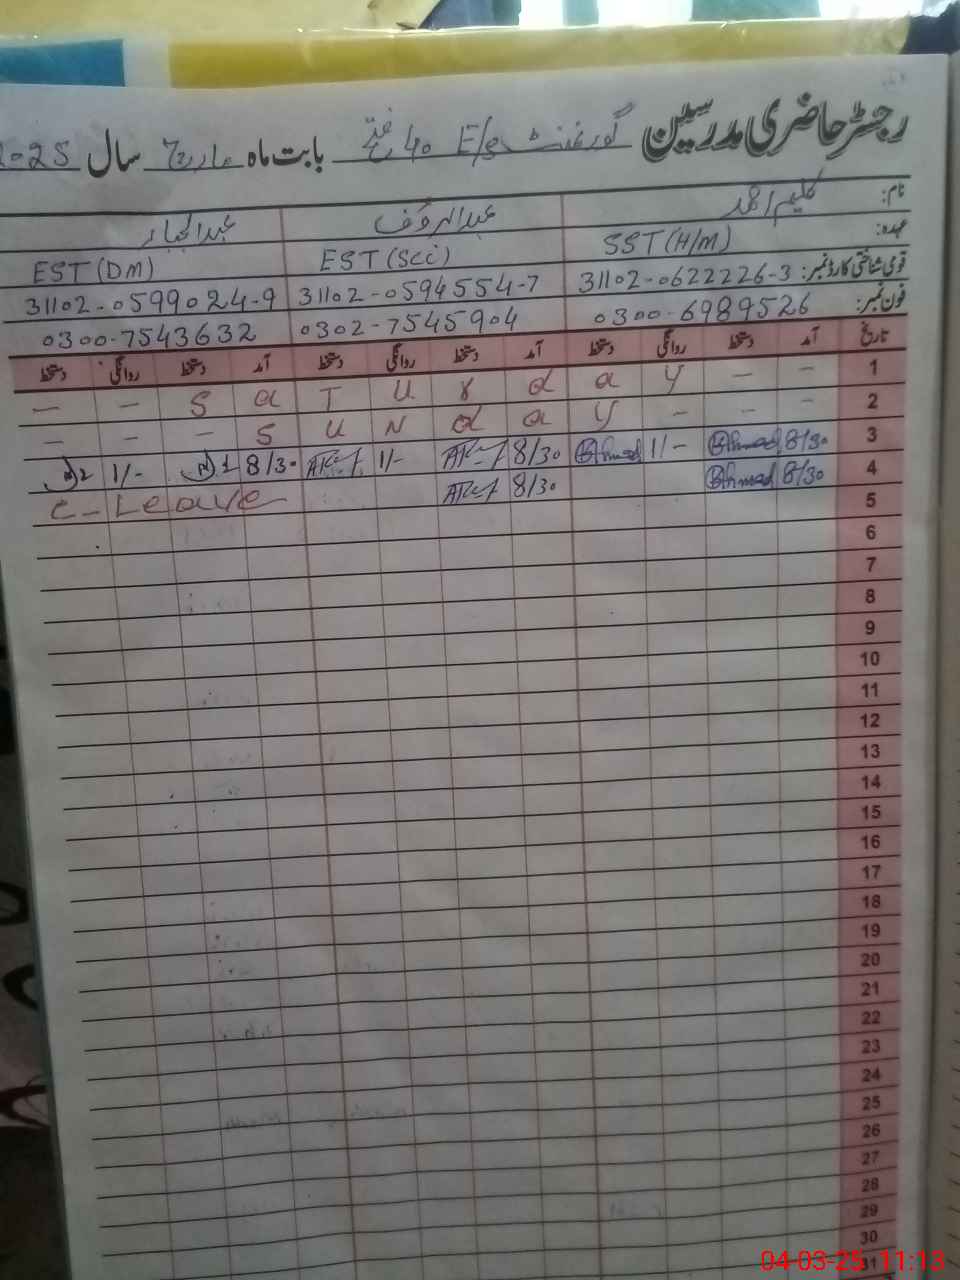 رجسٹر حاضری مدرسین گورنمنٹ E/s 40 فتح بابت ماہ مارچ سال 2025
نام: کلیم احمد عبدالرؤف عبدالجبار
عہدہ: SST (H/M) EST (Sci) EST (DM)
قومی شناختی کارڈ نمبر: 31102-0622226-3 31102-0594554-7 31102-0599024-9
فون نمبر: 0300-6989526 0302-7545904 0300-7543632
تاریخ آمد دستخط روانگی دستخط آمد دستخط روانگی دستخط آمد دستخط روانگی دستخط
1 - - S a T U r d a y - -
2 - - - S U N d a y - - -
3 8/30 Ahmed 1/- Ahmed 8/30 1/- 8/30 1/-
4 8/30 Ahmed 8/30 C-Leave
5
6
7
8
9
10
11
12
13
14
15
16
17
18
19
20
21
22
23
24
25
26
27
28
29
30
31
04-03-25 11:13